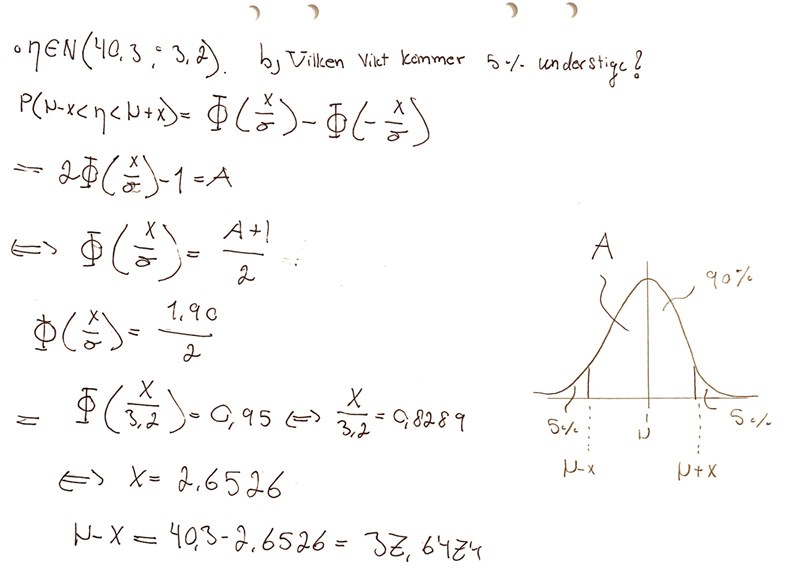 • η∈N(40,3 ; 3,2). b) Vilken vikt kommer 5% understige?
P(μ-x<η<μ+x)= Φ(x/σ)-Φ(-x/σ)
= 2Φ(x/σ)-1=A
⟺ Φ(x/σ)= A+1/2
Φ(x/σ)= 1,90/2
= Φ(x/3,2)=0,95 ⟺ x/3,2=0,8289
⟺ x= 2,6526
μ-x = 40,3-2,6526= 37,6474
A
90%
5%
μ
5%
μ-x
μ+x